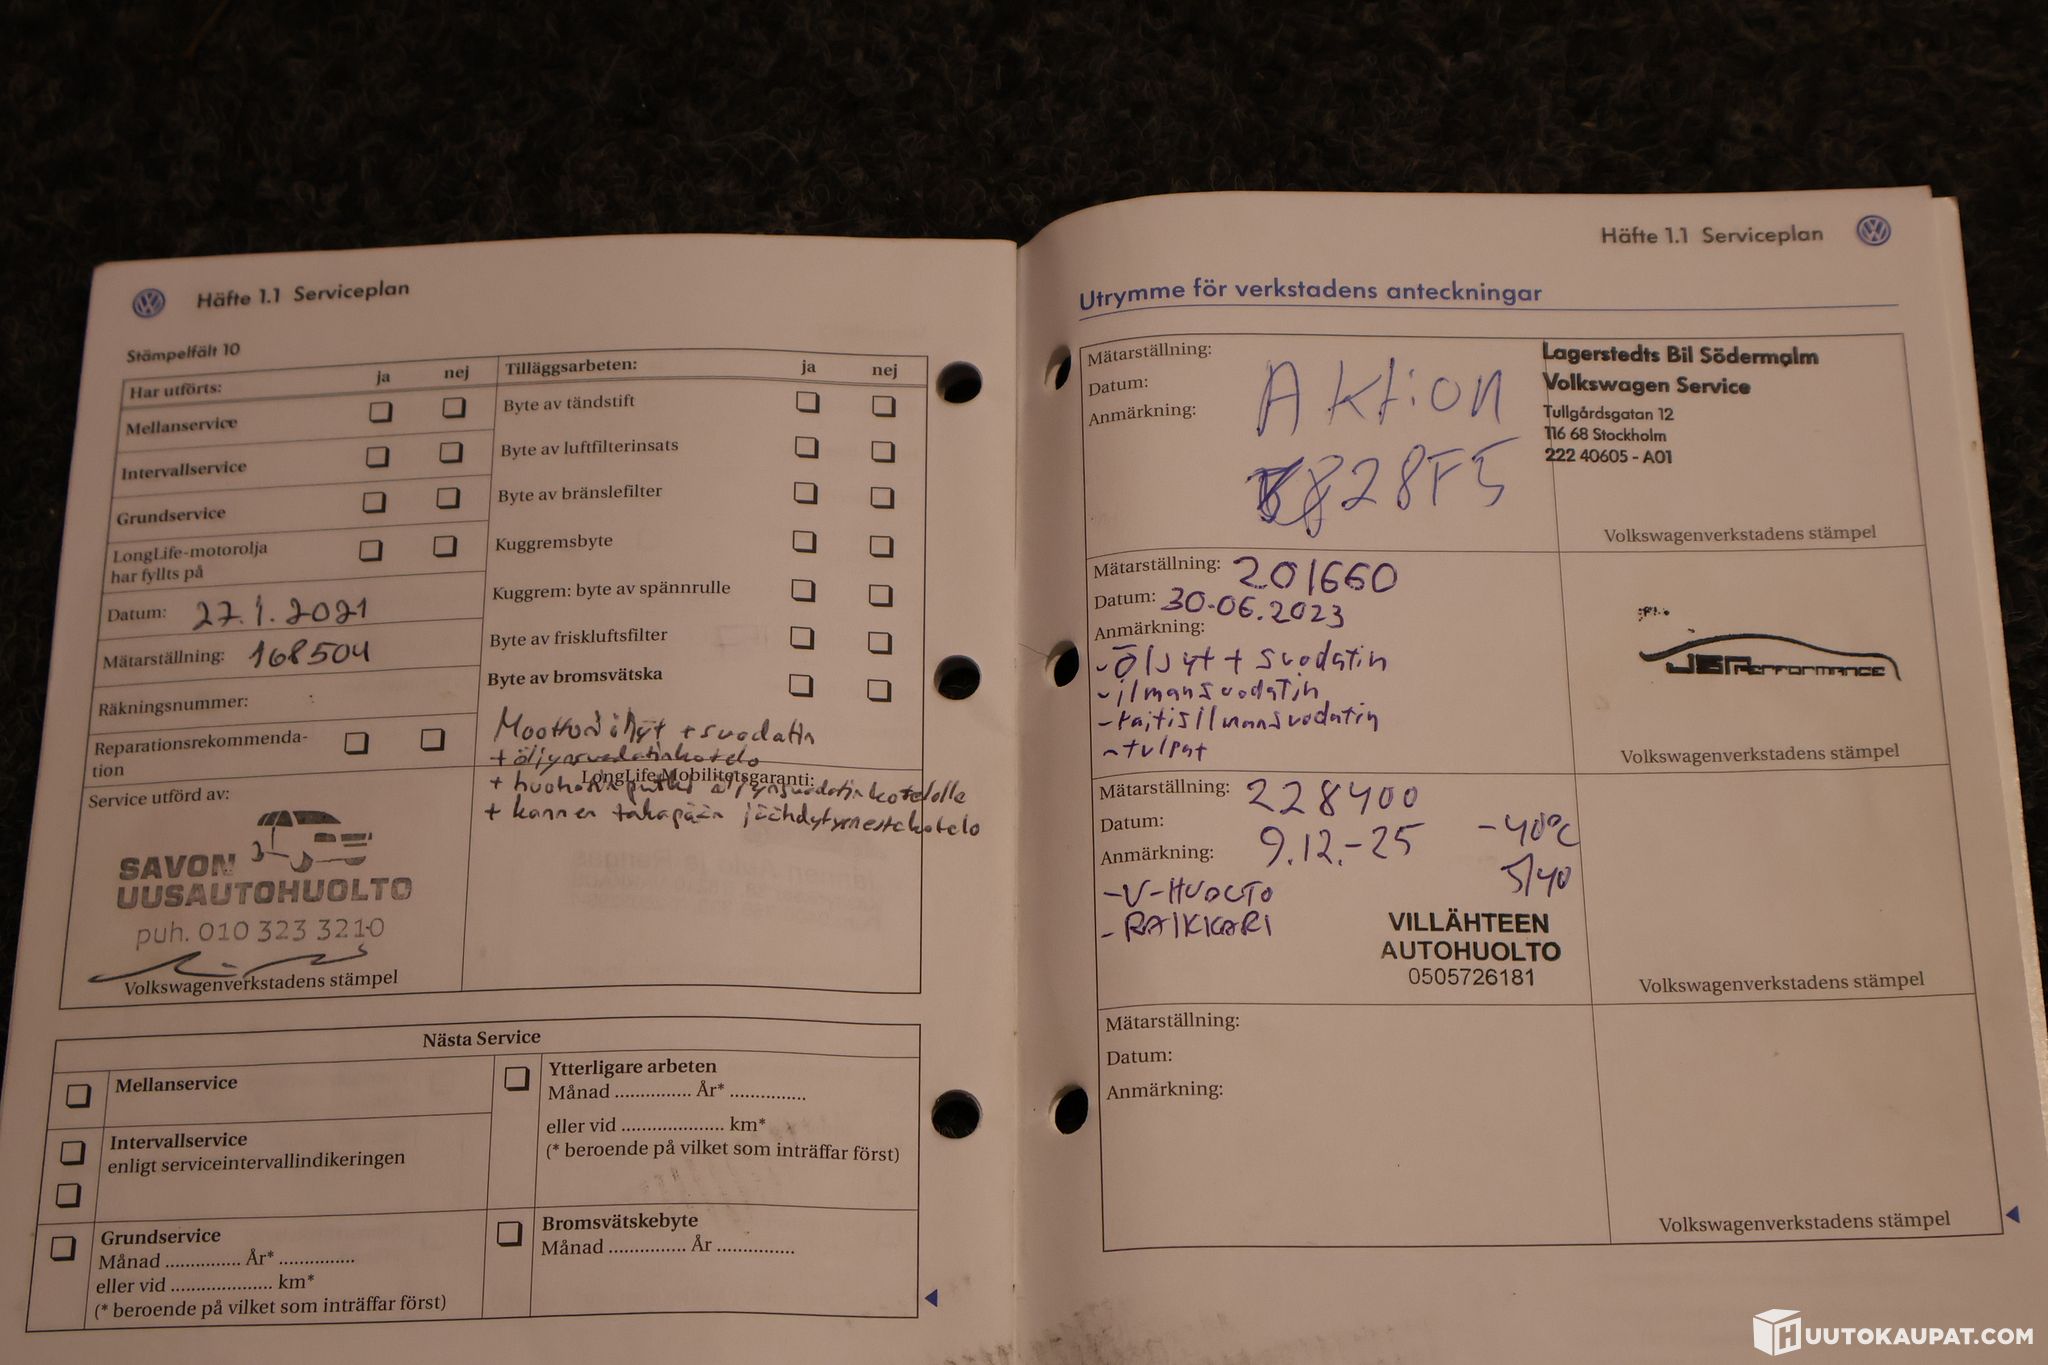 Häfte 1.1 Serviceplan
Stämpelfält 10
Har utförts: ja nej
Mellanservice
Intervallservice
Grundservice
LongLife-motorolja
har fyllts på
Datum: 27.1.2021
Mätarställning: 168504
Räkningsnummer:
Reparationsrekommenda-
tion
Service utförd av:
SAVON
UUSAUTOHUOLTO
puh. 010 323 3210
Volkswagenverkstadens stämpel
Tilläggsarbeten: ja nej
Byte av tändstift
Byte av luftfilterinsats
Byte av bränslefilter
Kuggremsbyte
Kuggrem: byte av spännrulle
Byte av friskluftsfilter
Byte av bromsvätska
Moottoriöljyt + suodatin
+ öljynsuodatinkotelo
LongLife Mobilitetsgaranti:
+ öljynsuodatinkotelolle
+ kannen takapään jäähdytysnestekotelo
Nästa Service
Mellanservice
Intervallservice
enligt serviceintervallindikeringen
Grundservice
Månad ............... År* ...............
eller vid .................... km*
(* beroende på vilket som inträffar först)
Ytterligare arbeten
Månad ............... År* ...............
eller vid .................... km*
(* beroende på vilket som inträffar först)
Bromsvätskebyte
Månad ............... År ...............
Häfte 1.1 Serviceplan
Utrymme för verkstadens anteckningar
Mätarställning:
Datum:
Anmärkning:
Aktion
828F5
Lagerstedts Bil Södermalm
Volkswagen Service
Tullgårdsgatan 12
116 68 Stockholm
222 40605 - A01
Volkswagenverkstadens stämpel
Mätarställning: 201660
Datum: 30.06.2023
Anmärkning:
- Öljyt + suodatin
- ilmansuodatin
- raitisilmansuodatin
- tulpat
Performance
Volkswagenverkstadens stämpel
Mätarställning: 228400
Datum: 9.12.-25
Anmärkning:
-40°C
5/40
- V-HUOLTO
- RAIKKARI
VILLÄHTEEN
AUTOHUOLTO
0505726181
Volkswagenverkstadens stämpel
Mätarställning:
Datum:
Anmärkning:
Volkswagenverkstadens stämpel
HUUTOKAUPAT.COM